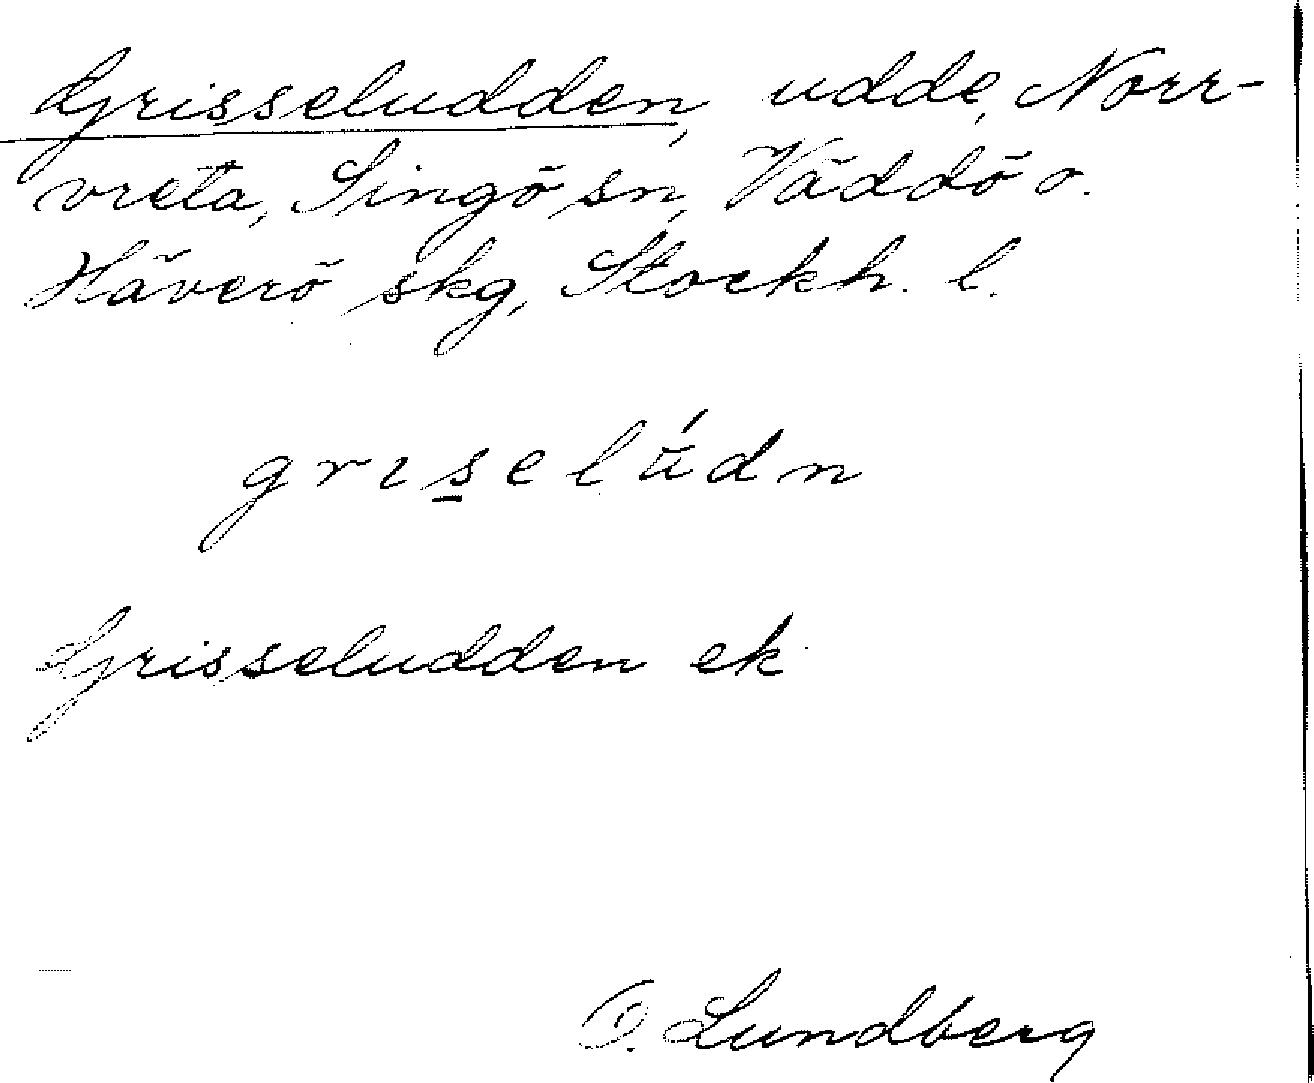 Grisseludden, udde, Norr-
vreta, Singö sn, Väddö o.
Häverö skg, Stockh. l.
grıs̲elǘdn
Grisseludden ek
O. Lundberg